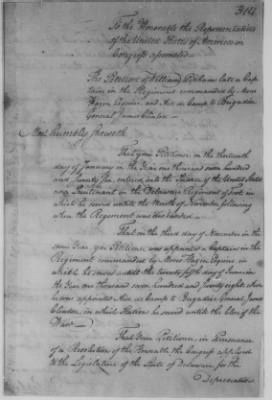 To the Honorable the Representatives
of the United States of America in
Congress assembled
The Petition of William Popham late a Cap
tain in the Regiment commanded by
Hazen Esquire and Aid de Camp to Brigadier
General James Clinton
Most humbly sheweth
That your Petitioner on the
day of January in the Year one thousand seven hundred
and Seventy Six, entered into the Service of the United States
as a Lieutenant in the Delaware Regiment of Foot in
which he served until the of November following
when the Regiment was
That on the third day of November in the
same Year, your Petitioner was appointed a Captain in the
Regiment commanded by Moses Hazen Esquire in
which he served until the twenty fifth day of June in
the Year one thousand seven hundred and Seventy eight when
he was appointed Aid de Camp to Brigadier General James
Clinton, in which Station he served until the Close of the
War
That Your Petitioner, in Pursuance
of a Resolution of the Honorable the Congress applied
to the Legislature of the State of Delaware for the
Depreciation